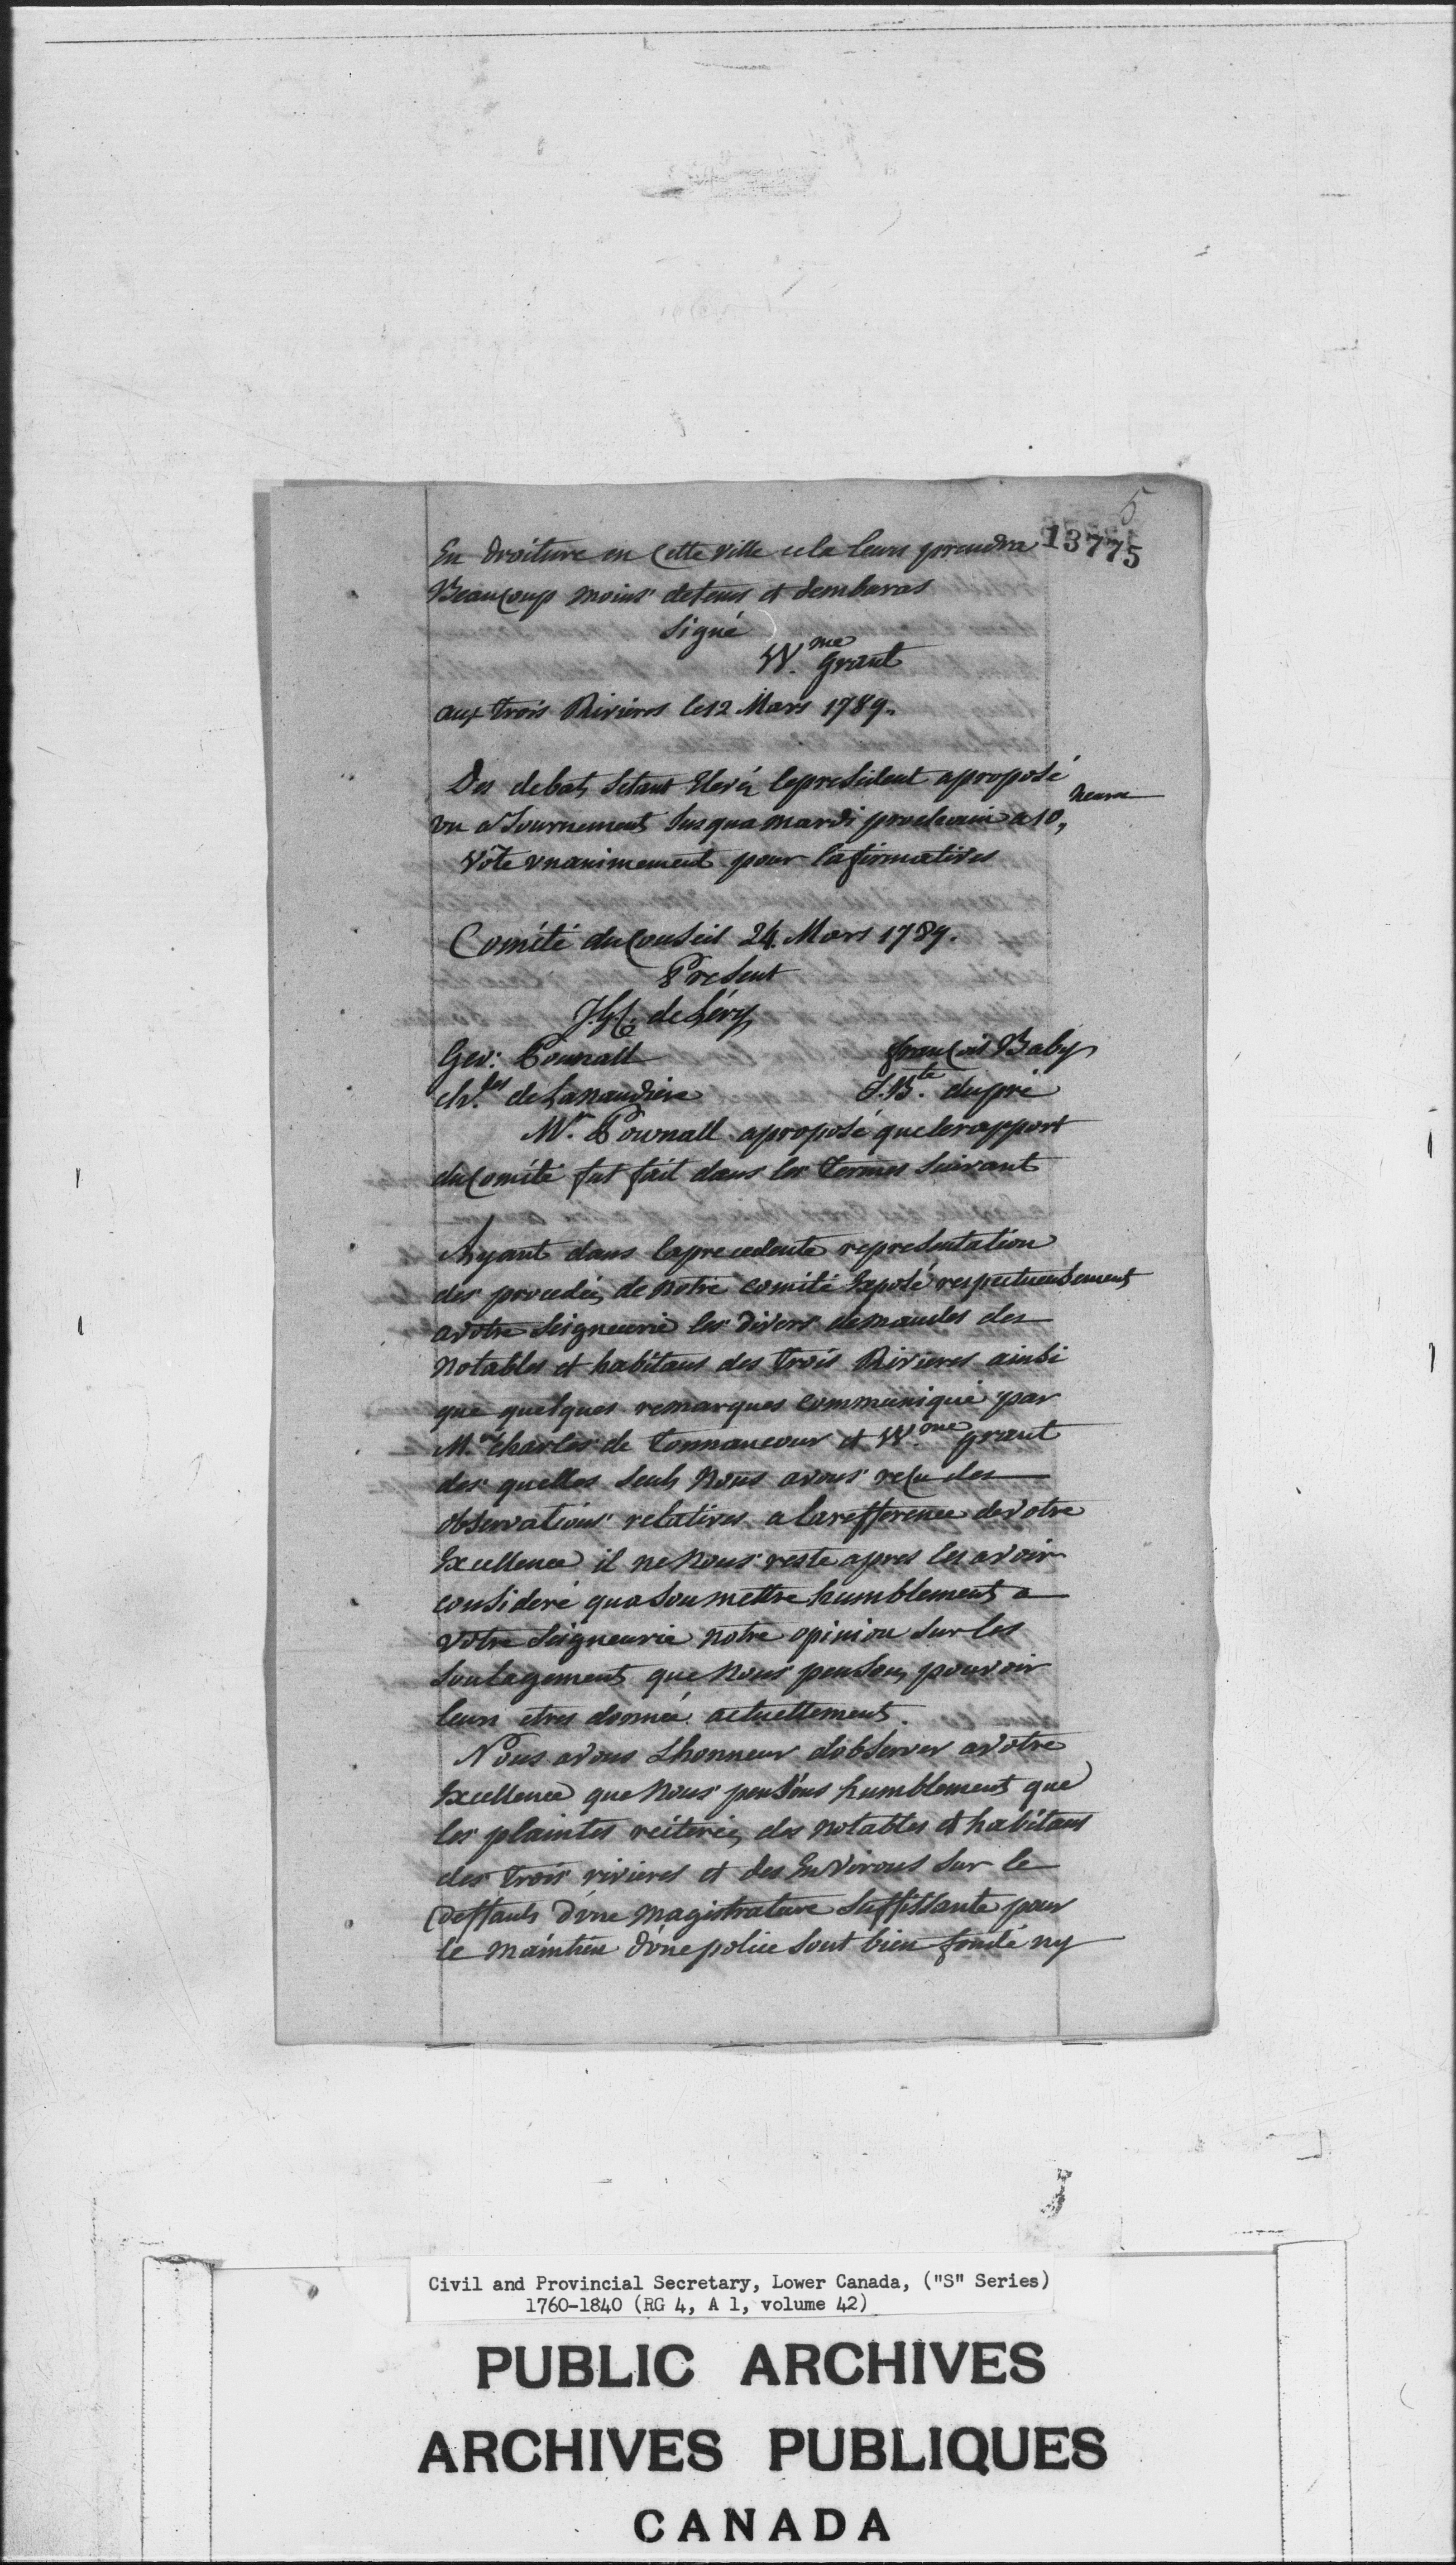 5
13775
En droiture en Cette ville cela leurs prendra
Beaucoup moins detems et dembaras
Signé
W.me Grant
aux trois Rivieres le12 Mars 1789.
Des debats Setant Elevés lepresident aproposé
vn aJournement Jusqua mardi prochain a 10, heure
Vôte vnanimement pour lafirmatives
Comité duConseil 24. Mars 1789.
Present
J.G.C. de Léry
Geo: Pownall François Baby
Ch.les de Lanaudiere J.B.te dupré
Mr. Pownall aproposé quelerapport
duComité fut fait dans les termes Suivant
Ayant dans laprecedente representation
des procedés de notre comité Exposé respectueusement
avotre Seigneurie les divers demandes des
notables et habitans des trois Rivieres ainsi
que quelques remarques communiqué par
M.rs Charles de Tonnancour et W.me grant
des quelles Seuls Nous avons reçu des
observations relatives a larefference devotre
Excellence il ne Nous reste apres les avoir
consideré qua Soumettre humblement a
votre Seigneurie notre opinion Sur les
Soulagement que Nous pensons pouvoir
leurs etres donnée actuellement.
Nous avons Lhonneur dobserver avotre
Excellence que Nous pensons humblement que
les plaintes reiterés des notables et habitans
des trois rivieres et des Environs Sur le
deffauts d'une magistrature Suffissante pour
le maintien d'une police Sont bien fondé ny
Civil and Provincial Secretary, Lower Canada, ("S" Series)
1760-1840 (RG 4, A 1, volume 42)
PUBLIC ARCHIVES
ARCHIVES PUBLIQUES
CANADA